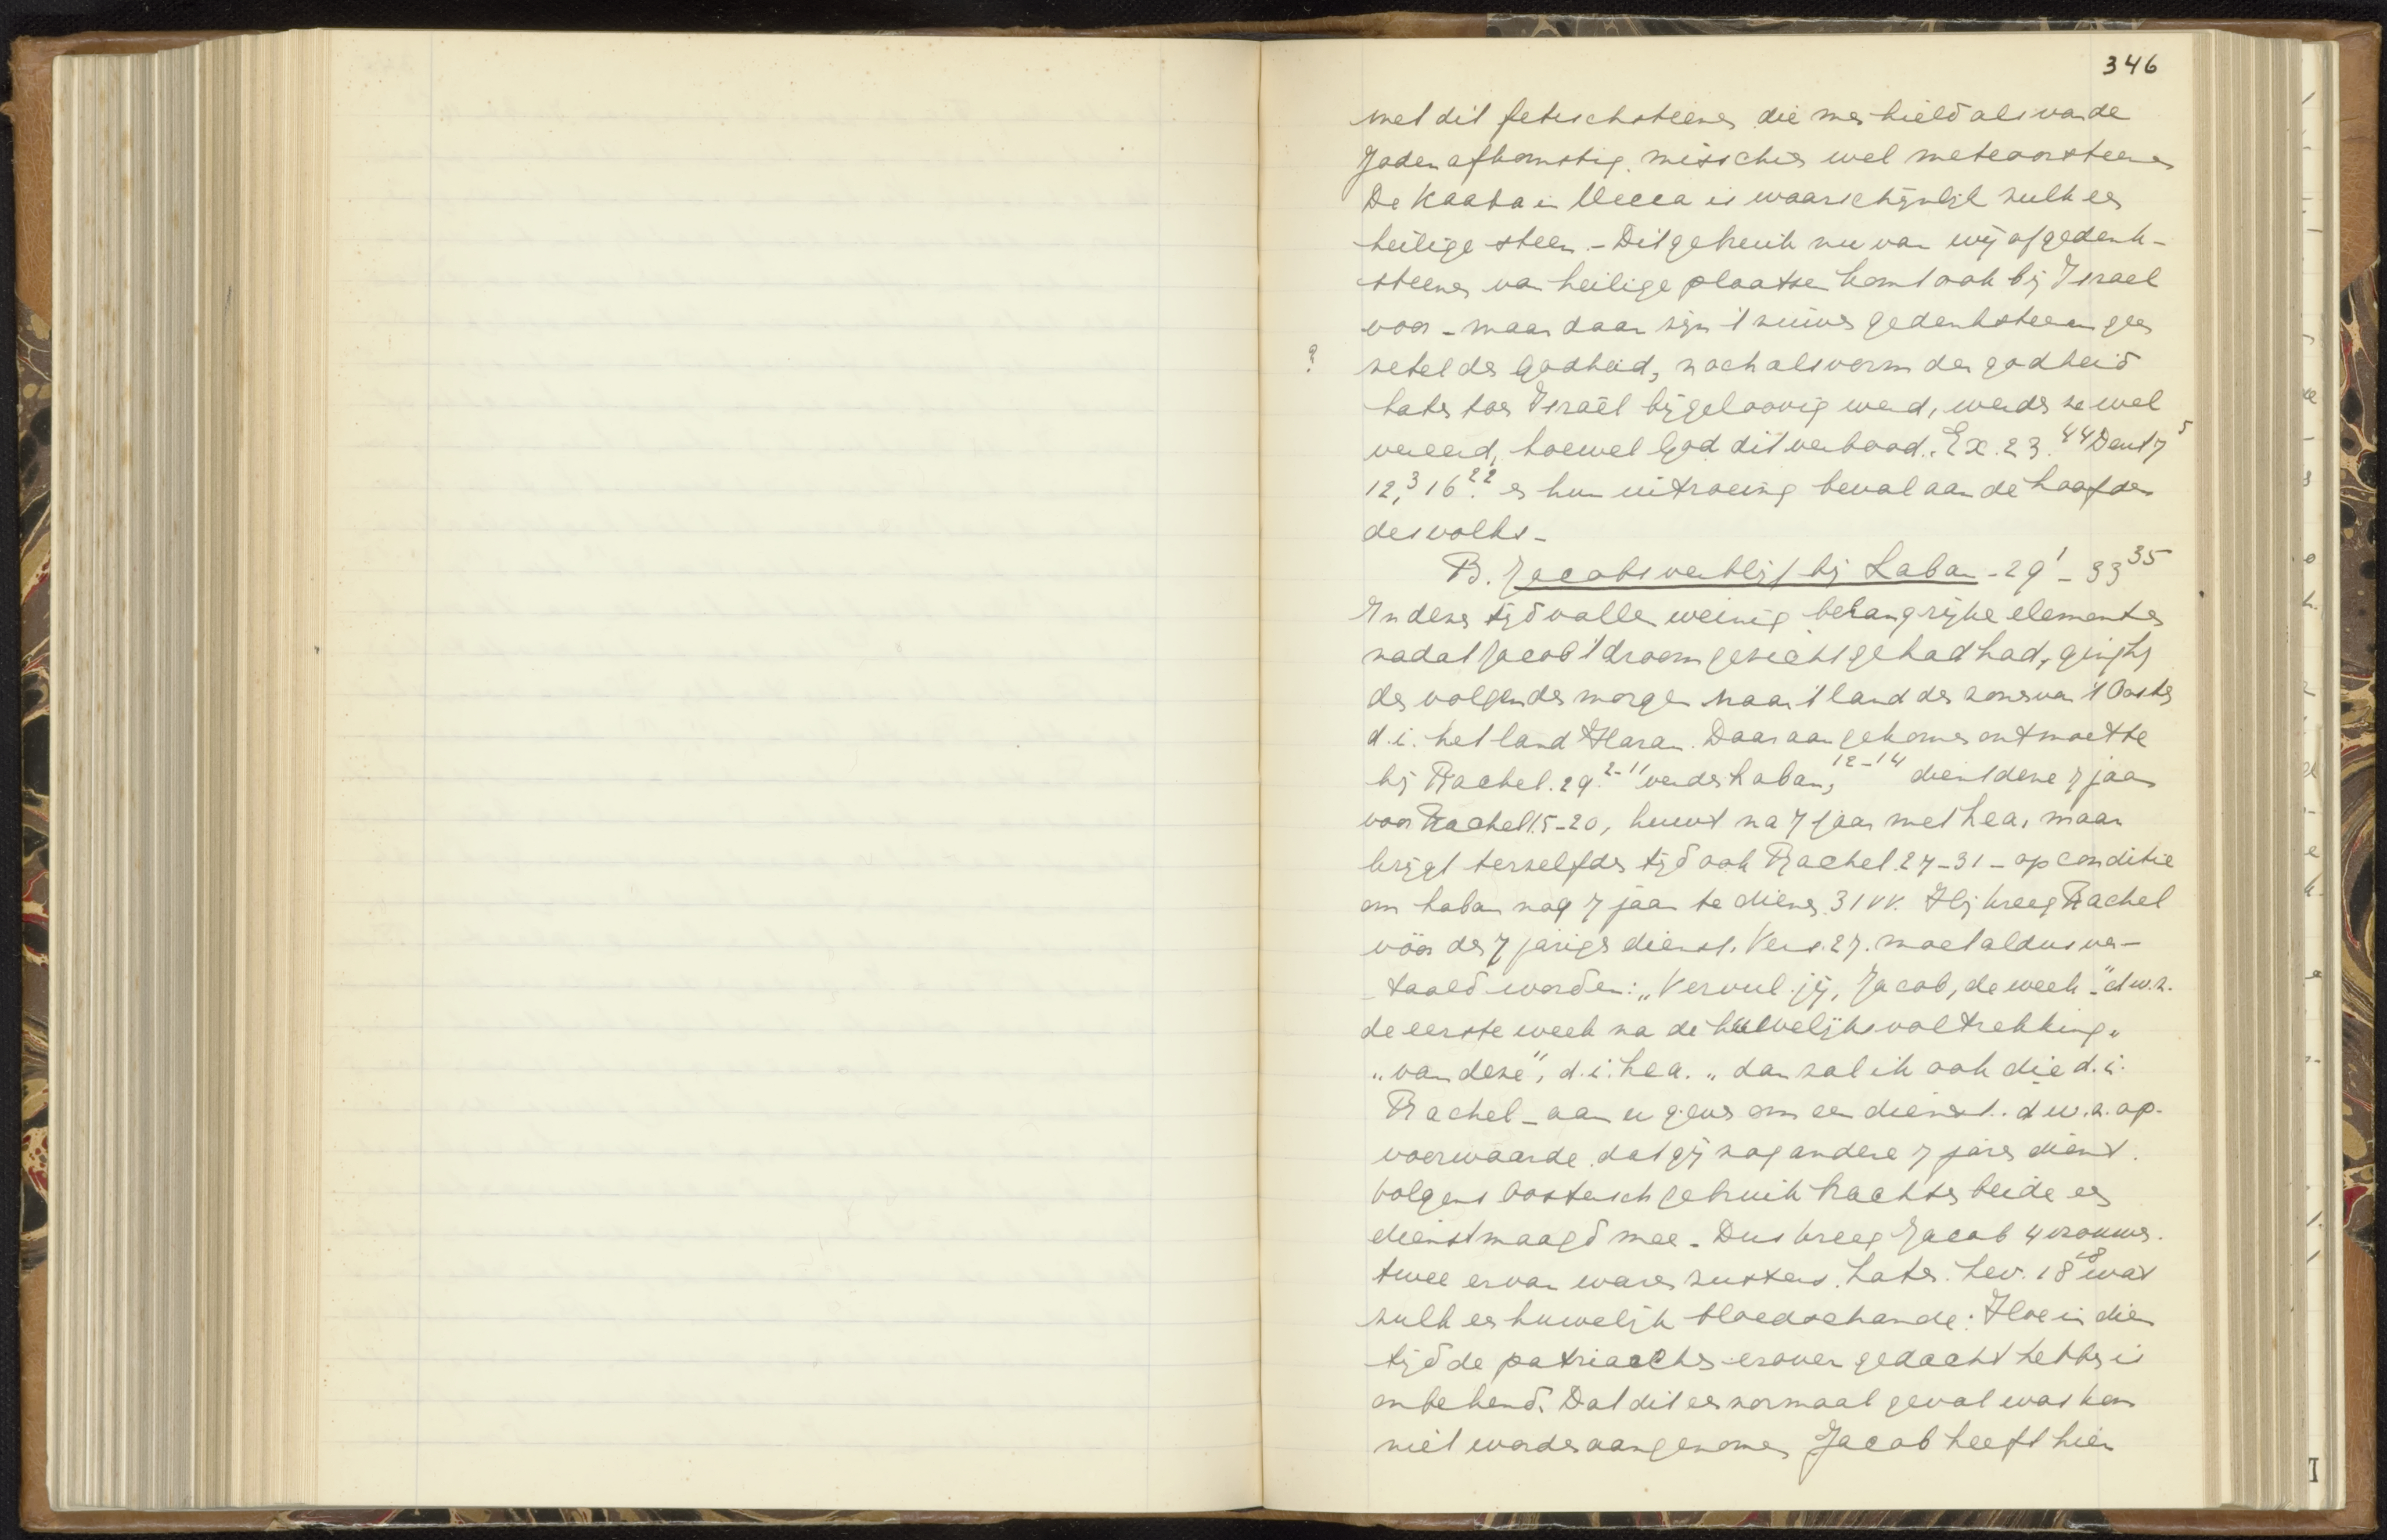 346
met dit fetischsteenen die men hield als van de
Goden afkomstig. misschien wel meteoorsteenen
De Kaaba in Mecca is waarschijnlijk zulk een
heilige steen. - Dit gebruik nu van wij of gedenk-
steenen van heilige plaatsen komt ook bij Israel
voor - maar daar zijn 't zuiver gedenksteenen geen
?
zetel der Godheid, noch als vorm der godheid
later toen Israël bijgeloovig werd, werden ze wel
vereerd, hoewel God dit verbood. Ex. 23.44 Deut 7 5
12,3 16 22. en hun uitroeiing beval aan de hoofden
des volks -
B. Jacobs verblijf bij Laban - 29 1 - 33 35
In dezen tijd vallen weinig belangrijke elementen
nadat Jacob 't droomgezicht gehad had, ging hij
den volgenden morgen naar 't land der zonen van 't Oosten
d.i. het land Haran. Daar aangekomen ontmoette
hij Rachel. 29. 2-11 verder Laban, 12-14 dient deze 7 jaar
voor Rachel 15-20, huwt na 7 jaar met Lea, maar
krijgt terzelfder tijd ook Rachel. 27-31 - op conditie
om Laban nog 7 jaar te dienen. 31 vv. Hij kreeg Rachel
vóór den 7 jarigen dienst. Vers. 27. moet aldus ver-
taald worden: „Vervul jij, Jacob, de week -" d.w.z.
de eerste week na de huwelijksvoltrekking"
„van deze", d.i. Lea. „dan zal ik ook die d.i.
Rachel - aan u geven om een dienst. d.w.z. op
voorwaarde dat gij nog andere 7 jaren dient.
Volgens Oostersch gebruik brachten beide een
dienstmaagd mee. - Dus kreeg Jacob 4 vrouwen.
twee ervan waren zusters. Later. Lev. 18 18 was
zulk een huwelijk bloedschande. Hoe in dien
tijd de patriarchen erover gedacht hebben is
onbekend. Dat dit een normaal geval was kan
niet worden aangenomen Jacob heeft hier